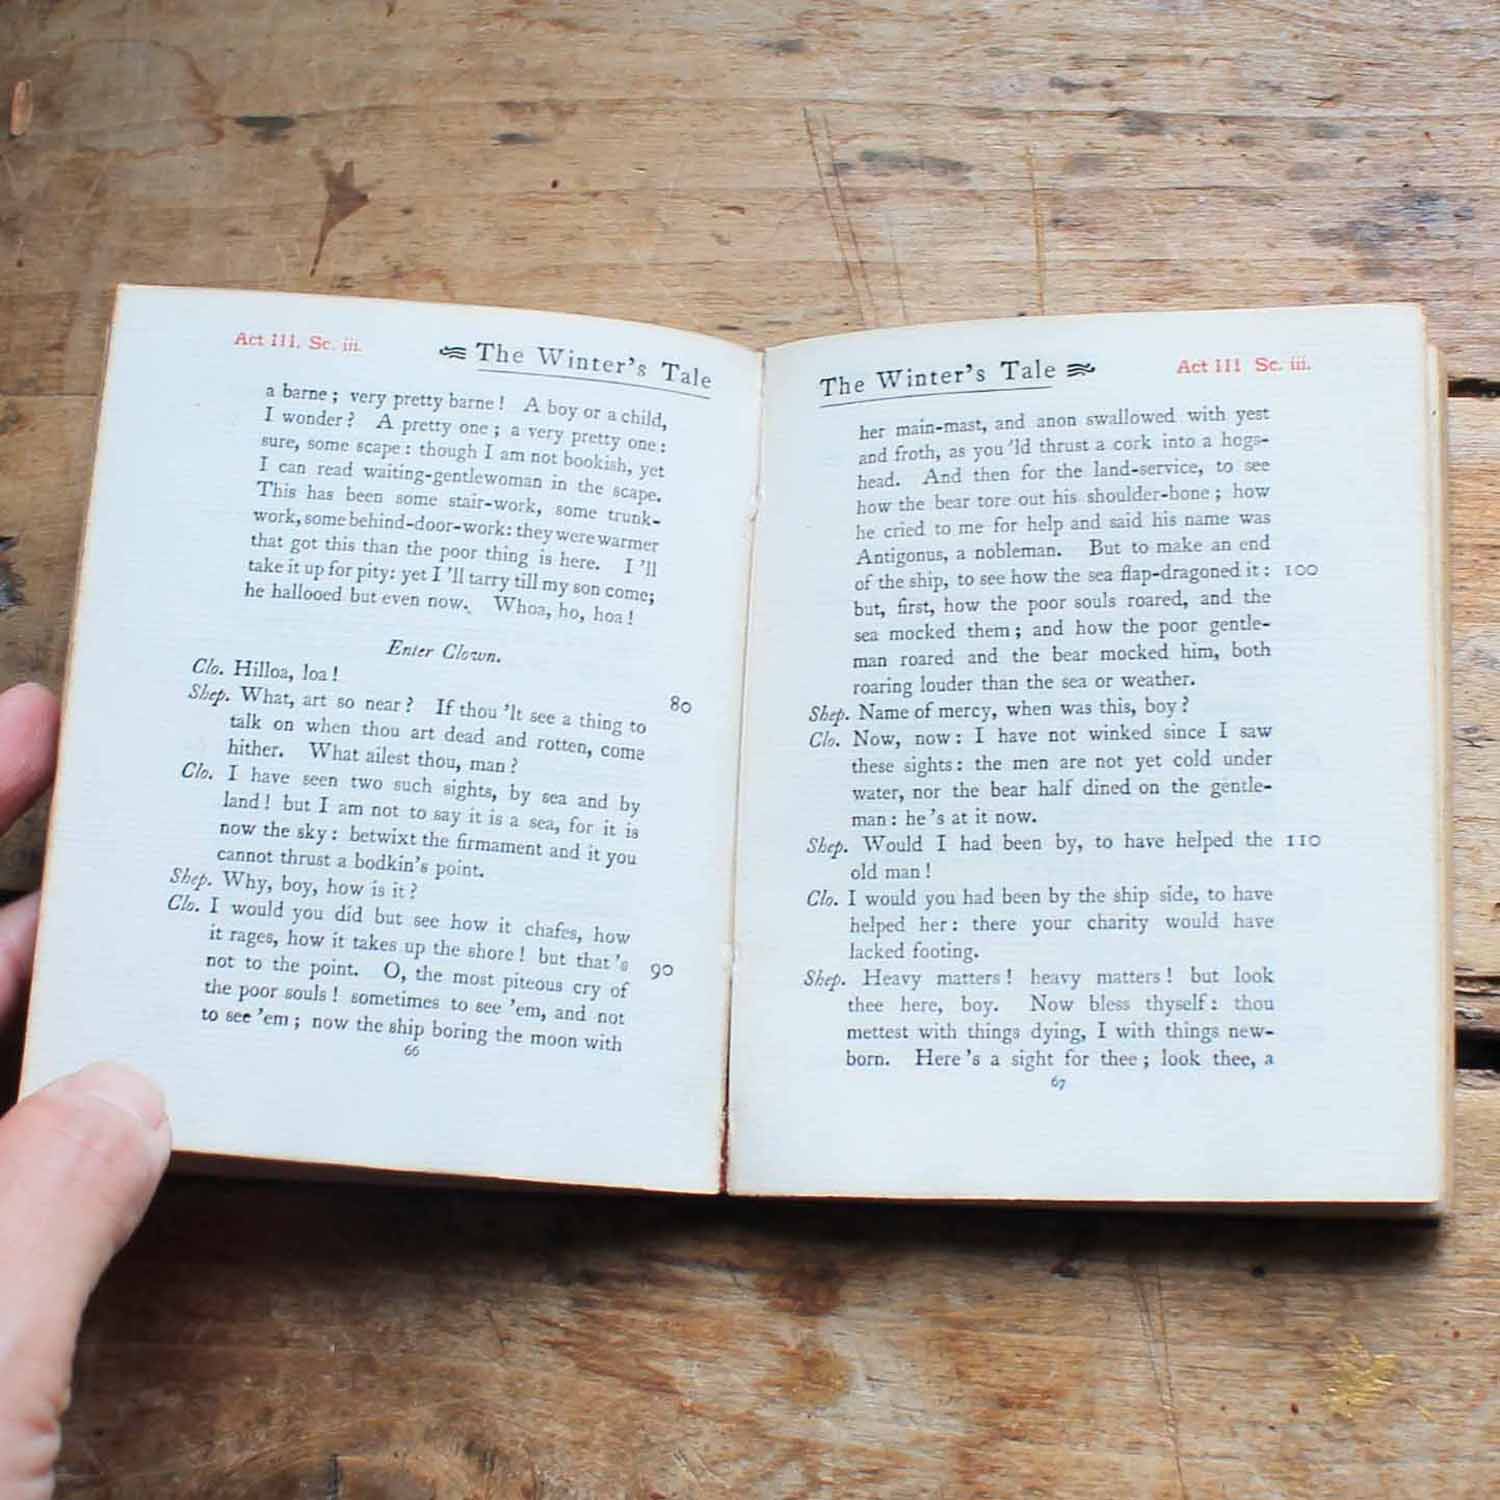 Act III. Sc. iii.
The Winter's Tale
a barne ; very pretty barne ! A boy or a child,
I wonder ? A pretty one ; a very pretty one :
sure, some scape : though I am not bookish, yet
I can read waiting-gentlewoman in the scape.
This has been some stair-work, some trunk-
work, some behind-door-work: they were warmer
that got this than the poor thing is here. I 'll
take it up for pity: yet I 'll tarry till my son come;
he hallooed but even now. Whoa, ho, hoa !
Enter Clown.
Clo. Hilloa, loa !
Shep. What, art so near ? If thou 'lt see a thing to 80
talk on when thou art dead and rotten, come
hither. What ailest thou, man ?
Clo. I have seen two such sights, by sea and by
land ! but I am not to say it is a sea, for it is
now the sky : betwixt the firmament and it you
cannot thrust a bodkin's point.
Shep. Why, boy, how is it ?
Clo. I would you did but see how it chafes, how
it rages, how it takes up the shore ! but that's
not to the point. O, the most piteous cry of 90
the poor souls ! sometimes to see 'em, and not
to see 'em ; now the ship boring the moon with
66
The Winter's Tale
Act III Sc. iii.
her main-mast, and anon swallowed with yest
and froth, as you 'ld thrust a cork into a hogs-
head. And then for the land-service, to see
how the bear tore out his shoulder-bone ; how
he cried to me for help and said his name was
Antigonus, a nobleman. But to make an end
of the ship, to see how the sea flap-dragoned it : 100
but, first, how the poor souls roared, and the
sea mocked them ; and how the poor gentle-
man roared and the bear mocked him, both
roaring louder than the sea or weather.
Shep. Name of mercy, when was this, boy ?
Clo. Now, now : I have not winked since I saw
these sights : the men are not yet cold under
water, nor the bear half dined on the gentle-
man : he 's at it now.
Shep. Would I had been by, to have helped the 110
old man !
Clo. I would you had been by the ship side, to have
helped her : there your charity would have
lacked footing.
Shep. Heavy matters ! heavy matters ! but look
thee here, boy. Now bless thyself : thou
mettest with things dying, I with things new-
born. Here 's a sight for thee ; look thee, a
67